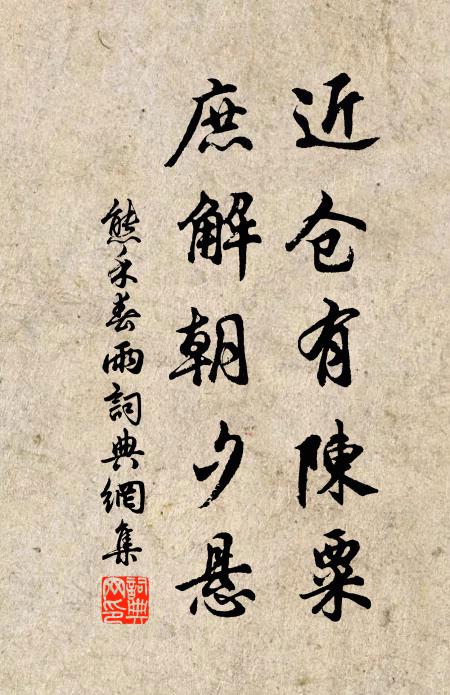 近仓有陳粟
庶解朝夕悬
熊禾春雨詞典網集
詞典网印